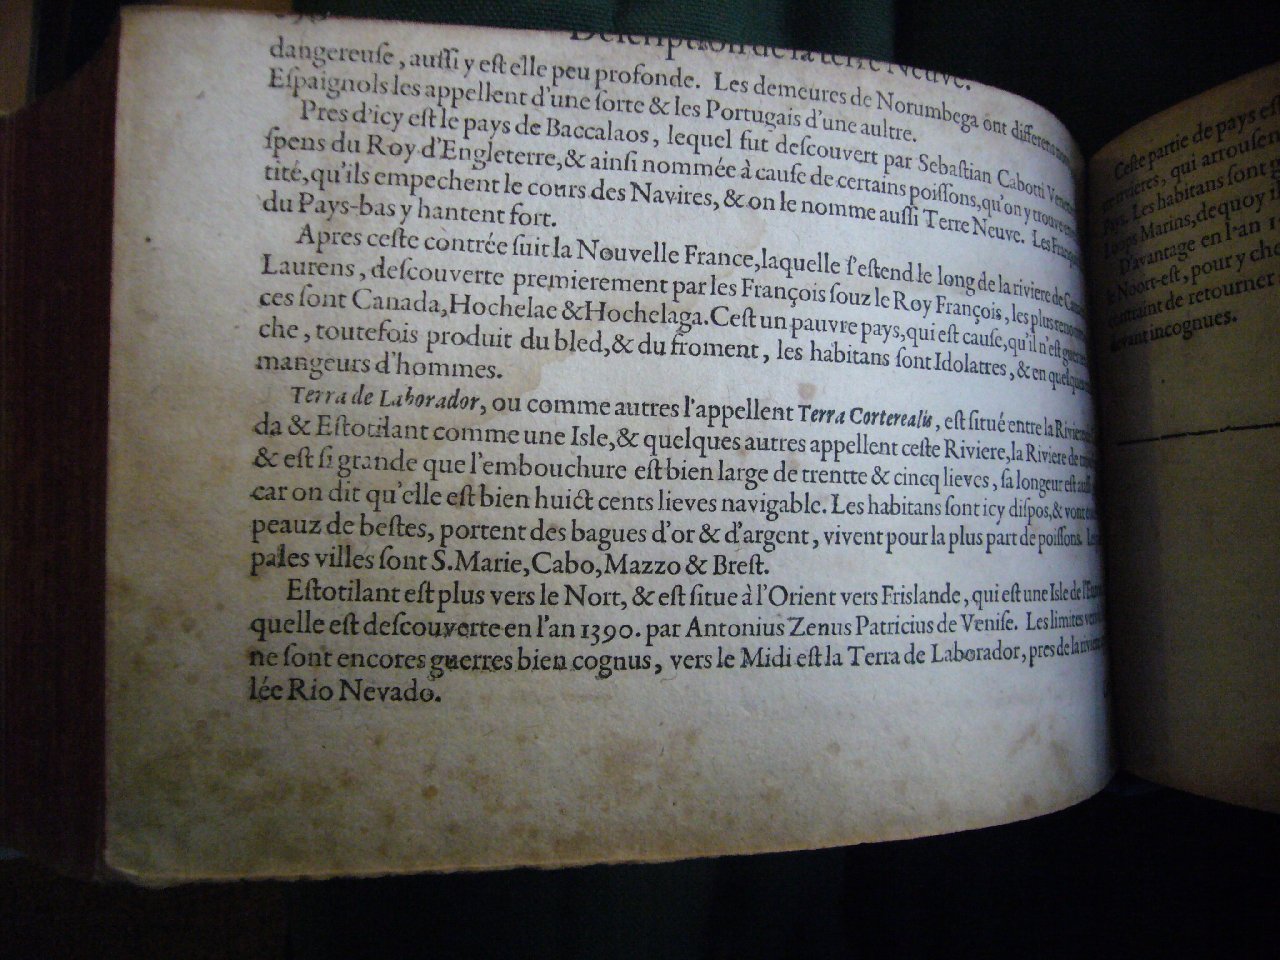 Description de la terre Neuve.
dangereuse, aussi y est elle peu profonde. Les demeures de Norumbega ont different
Espaignols les appellent d'une sorte & les Portugais d'une aultre.
Pres d'icy est le pays de Baccalaos, lequel fut descouvert par Sebastian Cabotti
spens du Roy d'Engleterre, & ainsi nommée à cause de certains poissons, qu'on y trouve
tité, qu'ils empechent le cours des Navires, & on le nomme aussi Terre Neuve. Les
du Pays-bas y hantent fort.
Apres ceste contrée suit la Nouvelle France, laquelle s'estend le long de la riviere de
Laurens, descouverte premierement par les François souz le Roy François, les plus
ces sont Canada, Hochelae & Hochelaga. Cest un pauvre pays, qui est cause, qu'il n'est
che, toutefois produit du bled, & du froment, les habitans sont Idolatres, & en
mangeurs d'hommes.
Terra de Laborador, ou comme autres l'appellent Terra Corterealis, est situé entre la
da & Estotilant comme une Isle, & quelques autres appellent ceste Riviere, la Riviere de
& est si grande que l'embouchure est bien large de trentte & cincq lieves, sa longeur est
car on dit qu'elle est bien huict cents lieves navigable. Les habitans sont icy dispos, &
peauz de bestes, portent des bagues d'or & d'argent, vivent pour la plus part de poissons.
pales villes sont S. Marie, Cabo, Mazzo & Brest.
Estotilant est plus vers le Nort, & est situe à l'Orient vers Frislande, qui est une Isle de
quelle est descouverte en l'an 1390. par Antonius Zenus Patricius de Venise. Les limites
ne sont encores guerres bien cognus, vers le Midi est la Terra de Laborador, pres de la
lée Rio Nevado.
Ceste partie de pays
rivieres, qui
Les habitans sont
Loups Marins, de quoy
D'avantage en l'an
Noort-est, pour y
de retourner
incognues.